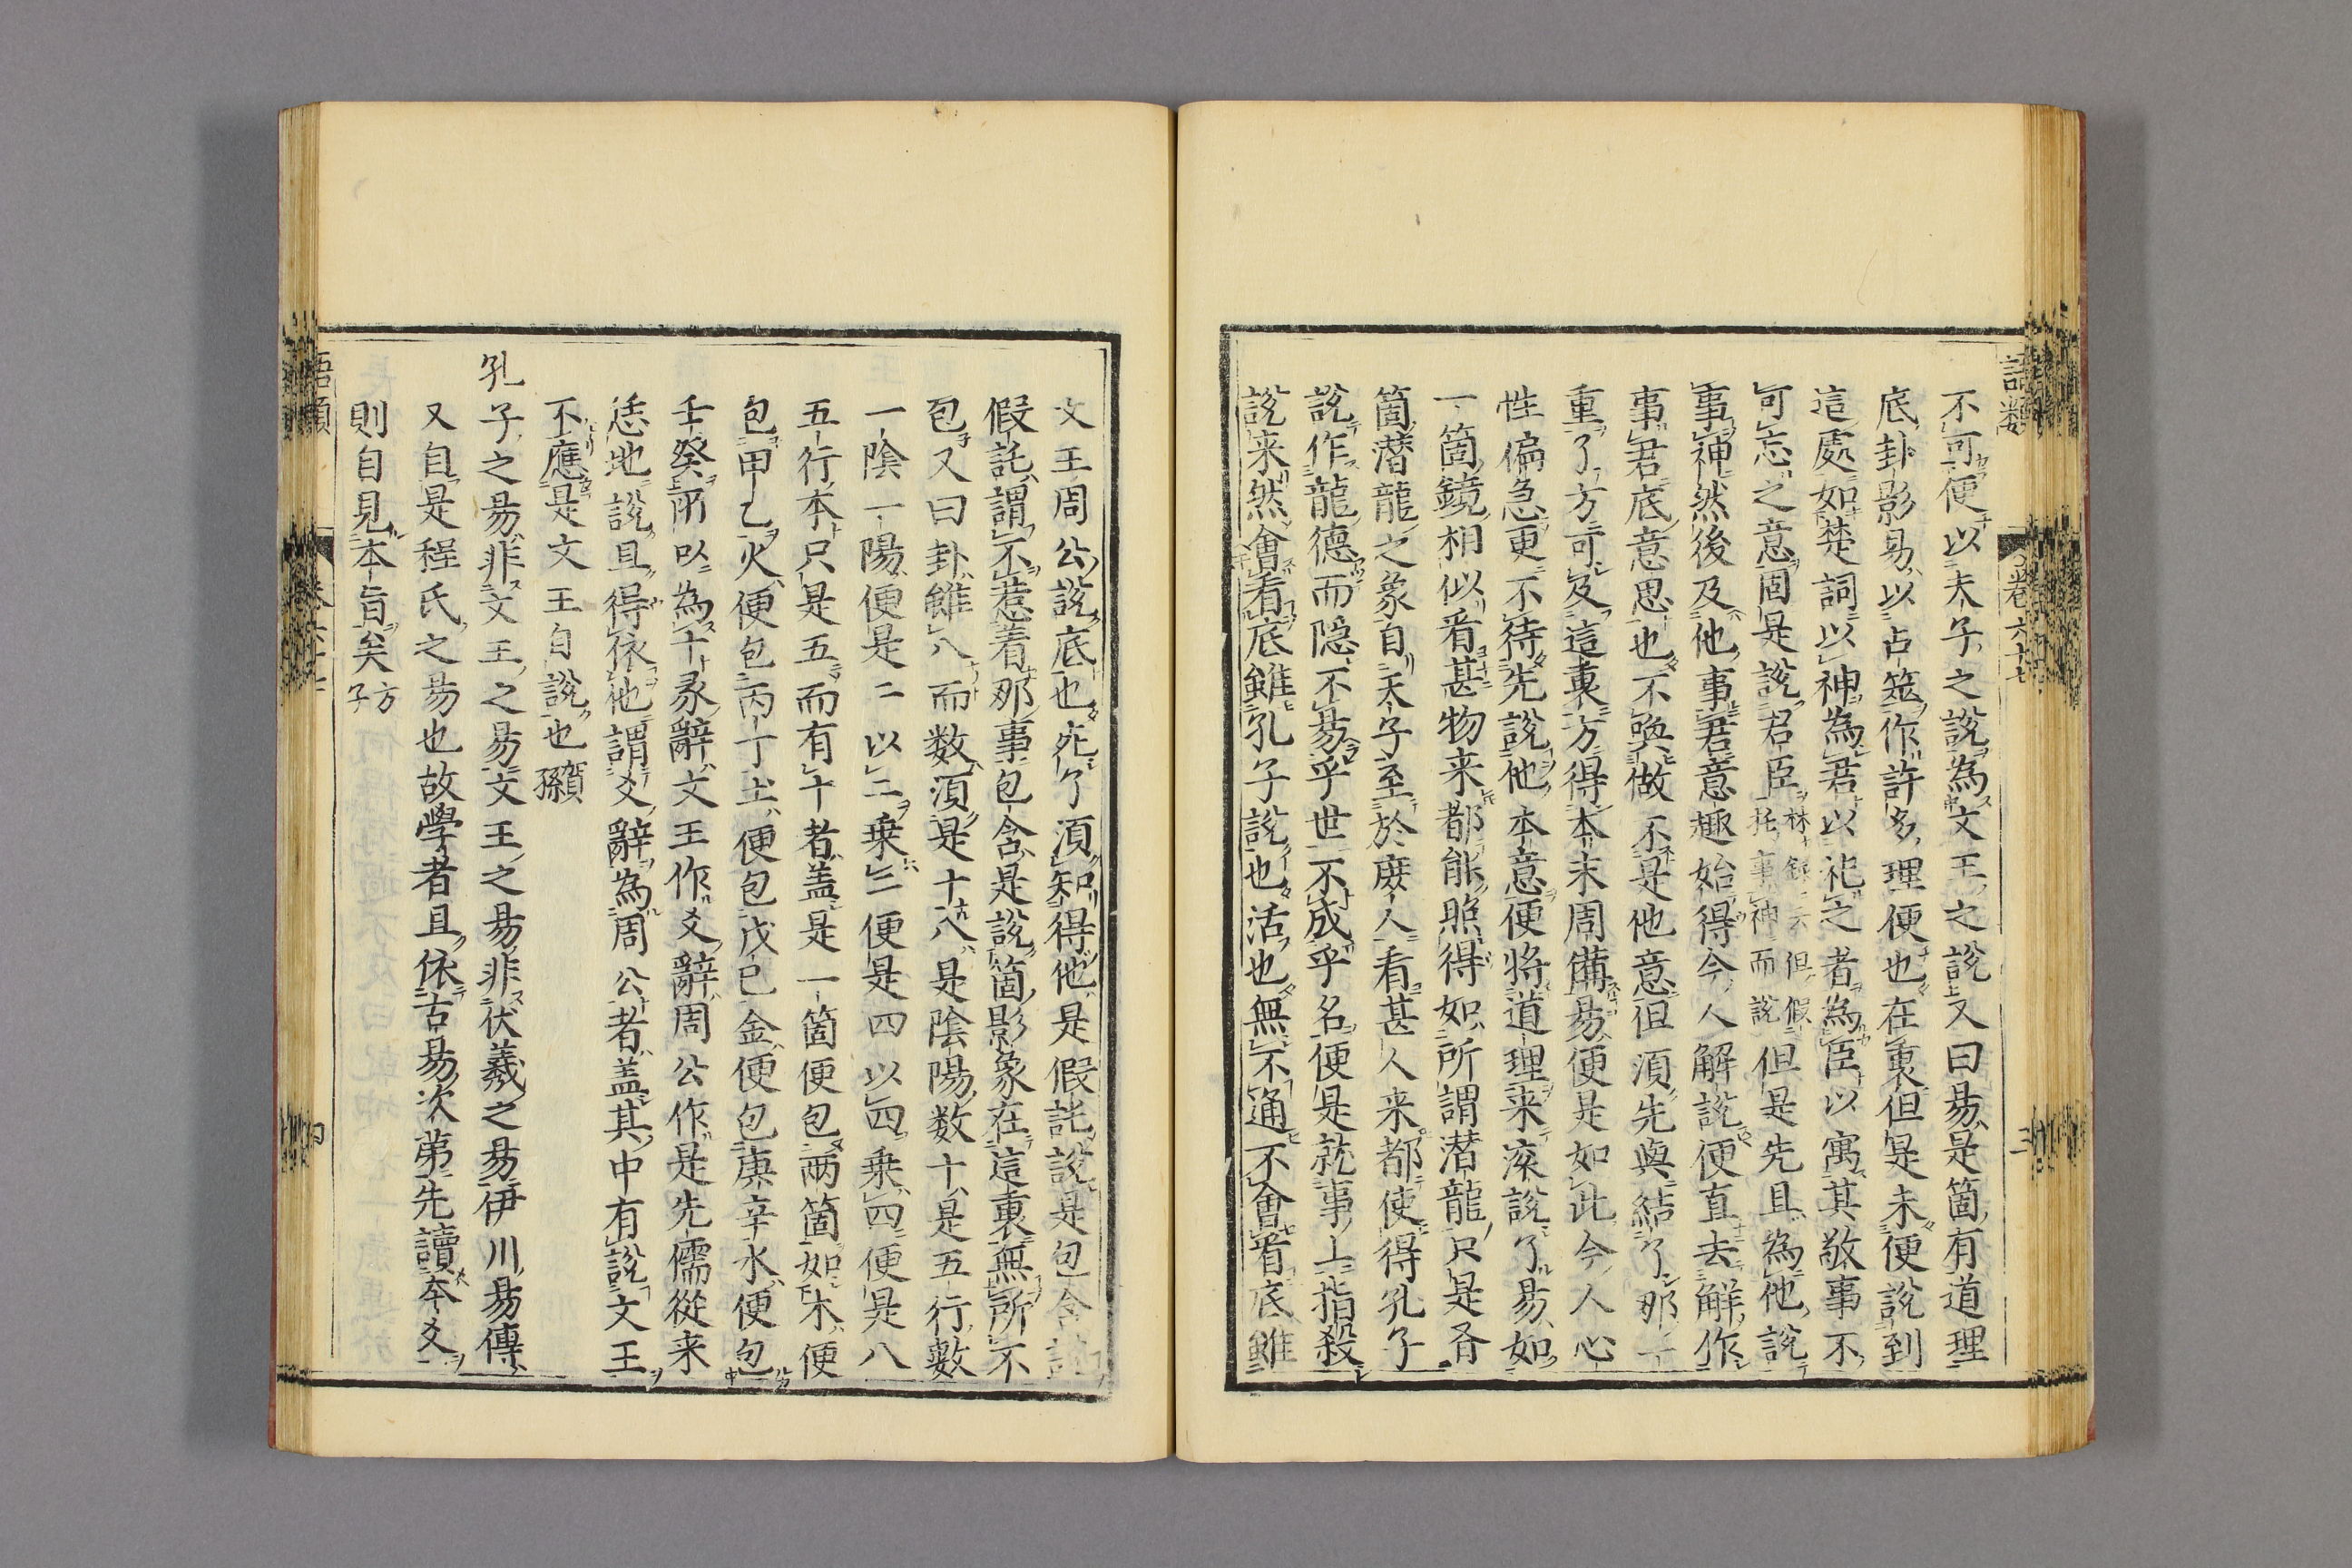 語類
卷六十七
三
不可便以夫子之說為文王之說又曰易是箇有道理
底卦影易以占筮作許多理便也在裏但是未便說到
這處如楚詞以神為君以祀之者為臣以寓其敬事不
可忘之意固是說君臣林録云但假託事神而說但是先且為他說
事神然後及他事君意趣始得今人解說便直去解作
事君底意思也不喚做不是他意但須先與結了那一
重了方可及這裏方得本末周備易便是如此今人心
性偏急更不待先說他本意便將道理来滚說了易如
一箇鏡相似看甚物来都能照得如所謂潜龍只是有
箇潜龍之象自天子至於庶人看甚人来都使得孔子
說作龍德而隠不易乎世不成乎名便是就事上指殺
說来然會看底雖孔子說也活也無不通不會看底雖
文王周公說底也死了須知得他是假託說是包含說
假託謂不惹着那事包含是說箇影象在這裏無所不
包又曰卦雖八而数須是十八是陰陽数十是五行數
一陰一陽便是二以二乗二便是四以四乗四便是八
五行本只是五而有十者盖是一箇便包兩箇如木便
包甲乙火便包丙丁土便包戊已金便包庚辛水便包
壬癸所以為十彖辭文王作爻辭周公作是先儒從来
恁地說且得依他謂爻辭為周公者盖其中有說文王
不應是文王自說也賀孫
孔子之易非文王之易文王之易非伏羲之易伊川易傳
又自是程氏之易也故學者且依古易次第先讀本爻
則自見本旨矣方子
語類
卷六十七
四